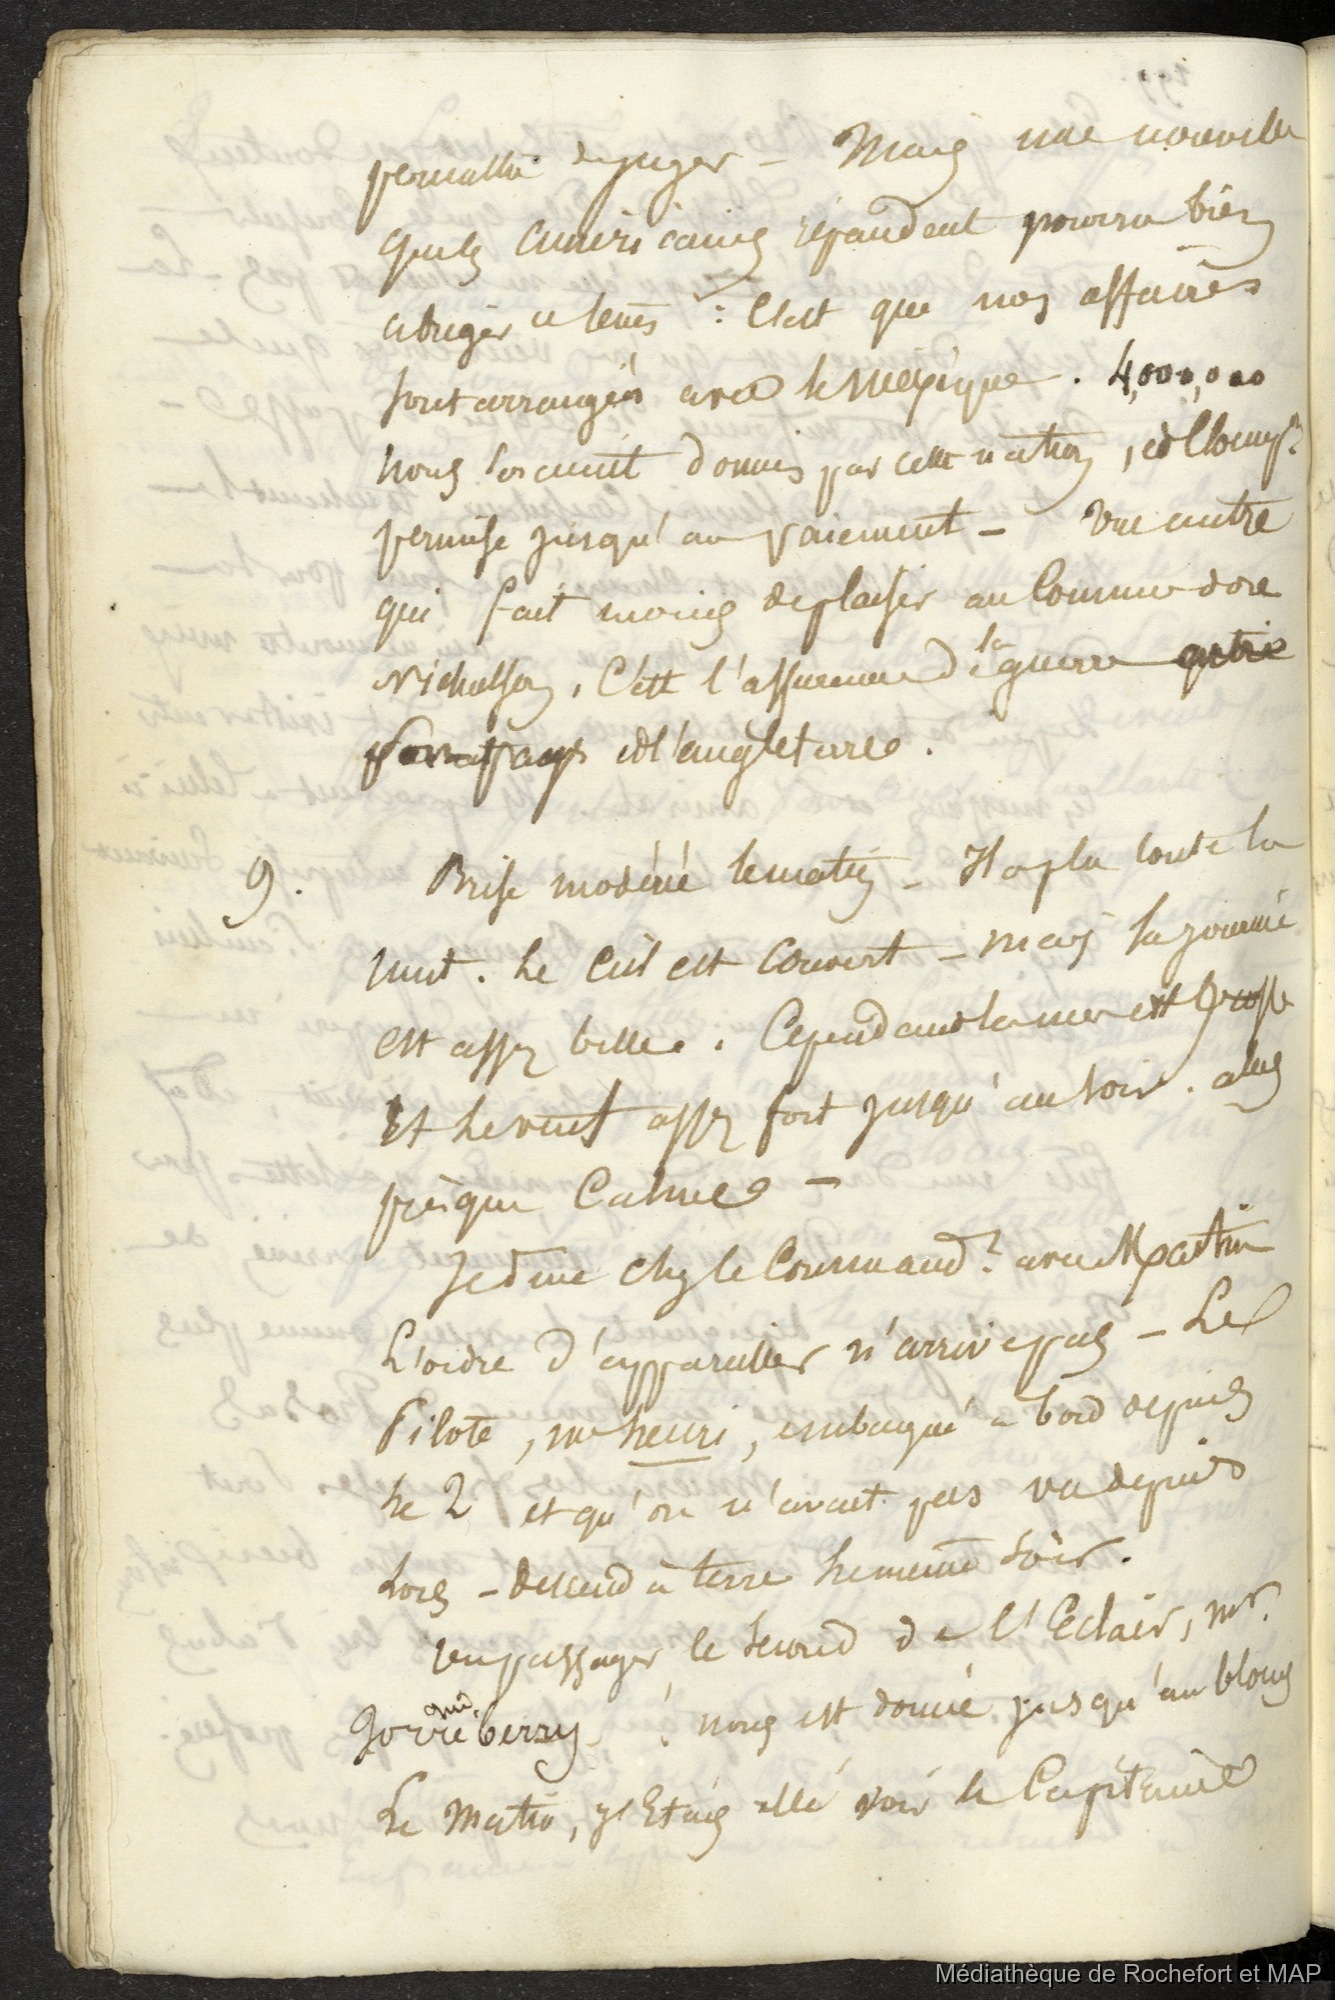 permettra de juger — Mais une nouvelle
que les américains répandent pourra bien
abréger ce tems : C'est que nos affaires
sont arrangées avec le Mexique . 4,000,000
nous seraient donnés par cette nation, et
permise jusqu'au paiement — Une autre
qui fait moins de plaisir au Commodore
Nicholson, C'est l'assurance de la guerre entre
et l'angleterre .
9 . Brise modéré le matin — Il a plu toute la
nuit . Le Ciel est Couvert — mais la journée
est assez belle . Cependant la mer est grosse
Et le vent assez fort jusqu'au soir . alors
presque Calme —
Je dine chez le Command.t avec Martin
L'ordre d'appareiller n'arrive pas — Le
Pilote, mr henri, embarqué a bord depuis
le 2 et qu'on n'avait pas vu depuis
lors — descend à terre le meme soir .
Un passager le second de l'Eclair, mr.
Jorréberry, nous est donné jusqu'au blocus
Le Matin, j'Etais allé voir le Capitaine
Médiathèque de Rochefort et MAP